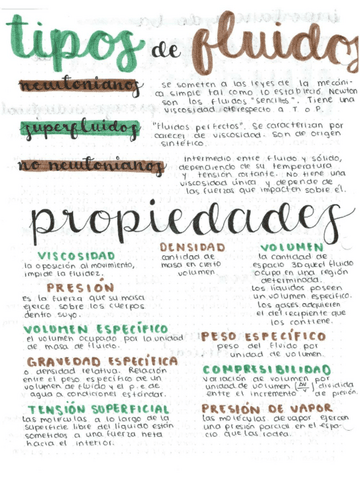 tipos de fluidos
newtonianos
se someten a las leyes de la mecáni-
ca simple tal como lo estableció. Newton
son los fluidos "sencillos". Tiene una
viscosidad respecto a T o P.
superfluidos
"Fluidos perfectos". Se caracterizan por
carecer de viscosidad. Son de origen
sintético.
no newtonianos
Intermedio entre fluido y sólido,
dependiendo de su temperatura
y tensión cortante. No tiene una
viscosidad única y depende de
las fuerzas que impacten sobre el.
propiedades
VISCOSIDAD
la oposición al movimiento,
impide la fluidez.
DENSIDAD
cantidad de
masa en cierto
volumen
VOLUMEN
la cantidad de
espacio 3D que el fluido
ocupa en una región
determinada.
los líquidos poseen
un volumen específico.
los gases adquieren
el del recipiente que
los contiene.
PRESIÓN
es la fuerza que su masa
ejerce sobre los cuerpos
dentro suyo.
VOLUMEN ESPECÍFICO
el volumen ocupado por la unidad
de masa de fluido.
PESO ESPECÍFICO
peso del fluido por
unidad de volumen.
GRAVEDAD ESPECÍFICA
o densidad relativa. Relación
entre el peso específico de un
volumen de fluido y el p.e. de
agua a condiciones estándar.
COMPRESIBILIDAD
variación de volumen por
unidad de volumen dividida
entre el incremento de presión.
TENSIÓN SUPERFICIAL
las moléculas a lo largo de la
superficie libre del líquido están
sometidos a una fuerza neta
hacia el interior.
PRESIÓN DE VAPOR
las moléculas de vapor ejercen
una presión parcial en el espa-
cio que las rodea.